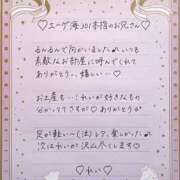 ♡ エーゲ海201本指のお兄さん♡
るんるんで向かいました♪いつも
素敵なお部屋に呼んでくれて
ありがとう、、嬉しい…♡
お土産も…!れいが好きなもの
分かっててさすが♡ありがとう
足が軽い〜(法)レア、楽しかった♪
次はれいが沢山尽くします♡
♡れい♡